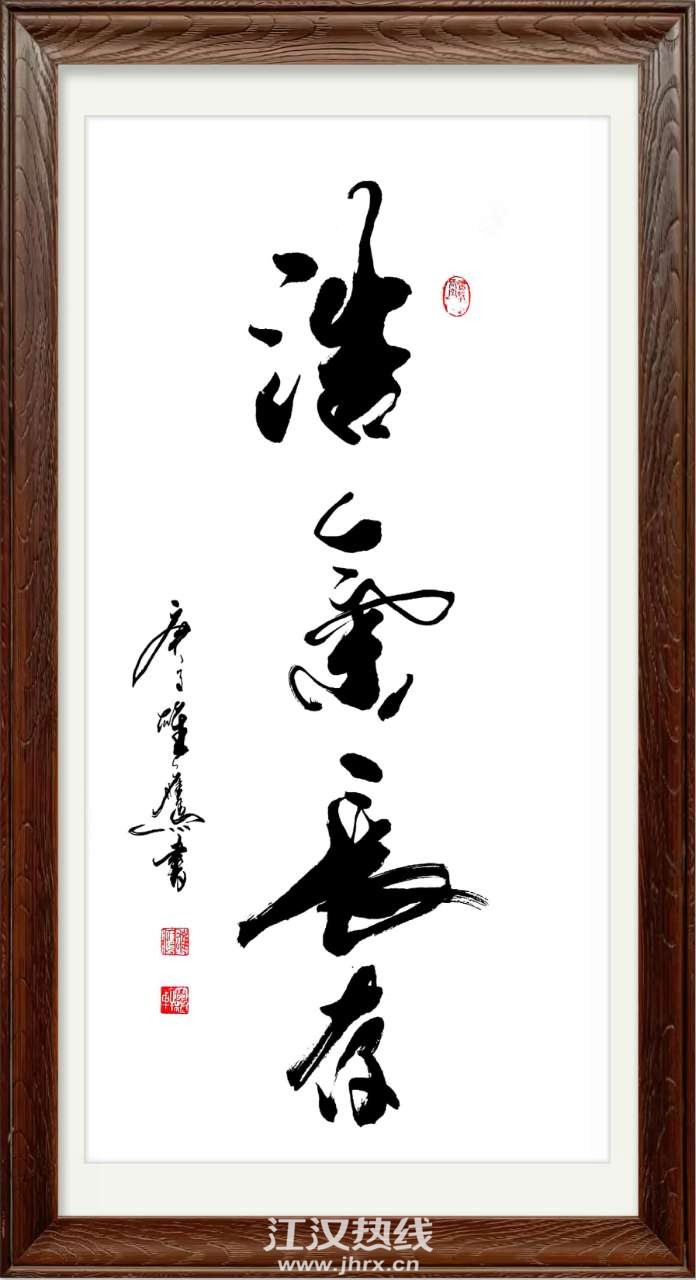 浩氣長存
庚子雄鷹書
江汉热线
www.jhrx.cn